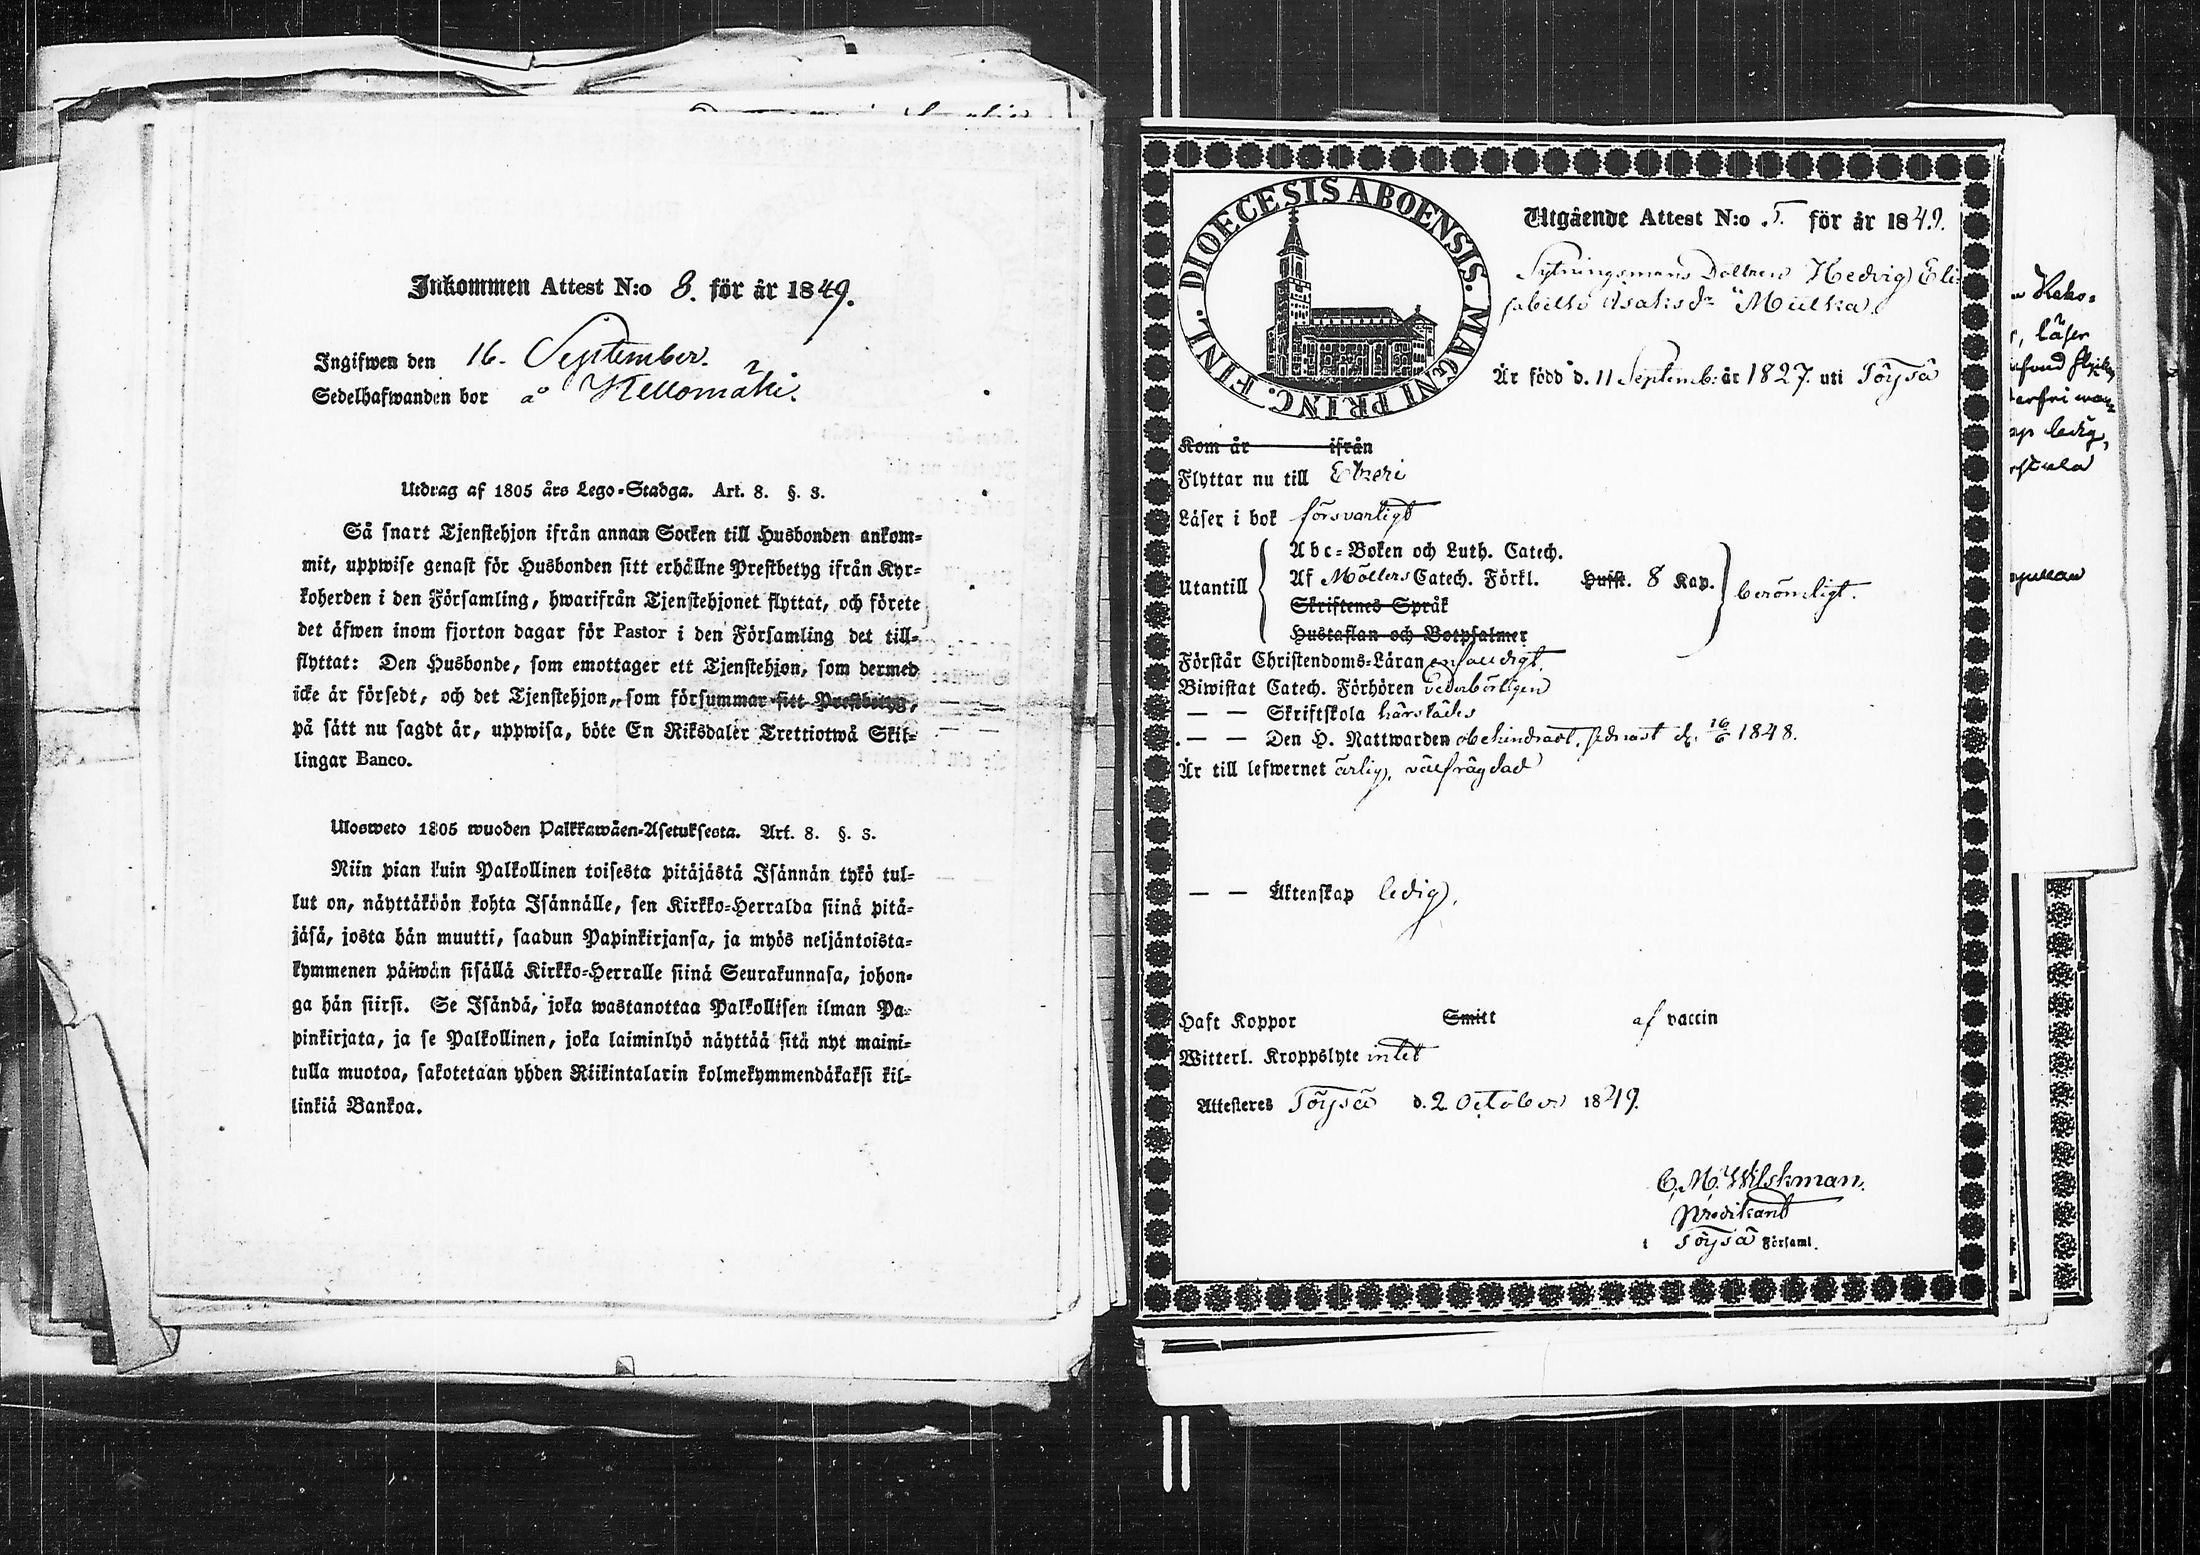 Inkommen Attest N:o 8. för år 1849.
Ingifwen den 16. September.
Sedelhafwanden bor å Kellomäki.
Utdrag af 1805 års Lego-Stadga. Art. 8. §. 3.
Så snart Tjenstehjon ifrån annan Socken till Husbonden ankom-
mit, uppwise genast för Husbonden sitt erhållne Prestbetyg ifrån Kyr-
koherden i den Församling, hwarifrån Tjenstehjonet flyttat, och förete
det äfwen inom fjorton dagar för Pastor i den Församling det till-
flyttat: Den Husbonde, som emottager ett Tjenstehjon, som dermed
icke är försedt, och det Tjenstehjon, som försummar sitt Prestbetyg,
på sätt nu sagdt är, uppwisa, böte En Riksdaler Trettiotwå Skil-
lingar Banco.
Ulosweto 1805 wuoden Palkkawäen-Asetuksesta. Art. 8. §. 3.
Niin pian kuin Palkollinen toisesta pitäjästä Isännän tykö tul-
lut on, näyttäköön kohta Isännälle, sen Kirkko-Herralda siinä pitä-
jäsä, josta hän muutti, saadun Papinkirjansa, ja myös neljäntoista-
kymmenen päiwän sisällä Kirkko-Herralle siinä Seurakunnasa, johon-
ga hän siirsi. Se Isändä, joka wastanottaa Palkollisen ilman Pa-
pinkirjata, ja se Palkollinen, joka laiminlyö näyttää sitä nyt maini-
tulla muotoa, sakotetaan yhden Riikintalarin kolmekymmendäkaksi kil-
linkiä Bankoa.
DIOECESIS ABOENSIS. MAGNI PRINC. FINL.
Utgående Attest N:o 5. för år 1849.
Sytningsmans Dottren Hedvig Eli-
sabeth Isaksdr Mülka.
Är född d. 11 Septemb: år 1827. uti Töysä
Kom år ifrån
Flyttar nu till Etseri
Läser i bok försvarligt
Utantill
Abc-Boken och Luth. Catech.
Af Möllers Catech. Förkl. Husst. 8 Kap. berömligt.
Skriftenes Språk
Hustaflan och Botpsalmer
Förstår Christendoms-Läran enfaldigt.
Biwistat Catech. Förhören vederbörligen
— — Skriftskola härstädes
— — Den H. Nattwarden obehindradt, sednast d. 16/6 1848.
Är till lefwernet ärlig, välfrägdad
— — Äktenskap ledig,
Haft Koppor Smitt af vaccin
Witterl. Kroppslyte intet
Attesteres Töysä d. 2 October 1849.
C. M. Wilskman.
Predikant
i Töysä Församl.
läser
ledig,